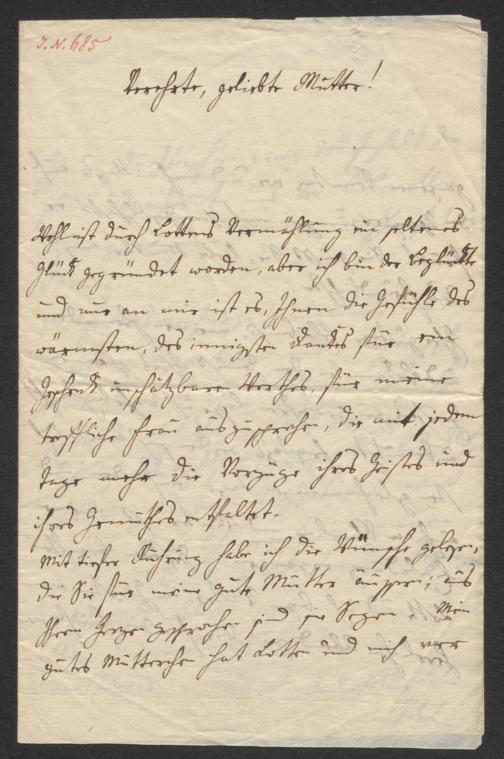 I.N. 685
Verehrte, geliebte Mutter!
Wohl ist durch Lottens Vermählung ein seltenes
Glück gegründet worden, aber ich bin der Beglückte
und nur an mir ist es, Ihnen die Gefühle des
wärmsten, des innigsten Dankes für ein
Geschenk unschätzbaren Werthes, für meine
treffliche Frau auszusprechen, die mit jedem
Tage mehr die Vorzüge ihres Geistes und
ihres Gemüthes entfaltet.
Mit tiefer Rührung habe ich die Wünsche gelesen,
die Sie für meine gute Mutter äussern; aus
Ihrem Herzen gesprochen sind sie Segen. Mein
gutes Mütterchen hat Lotte und mich vor